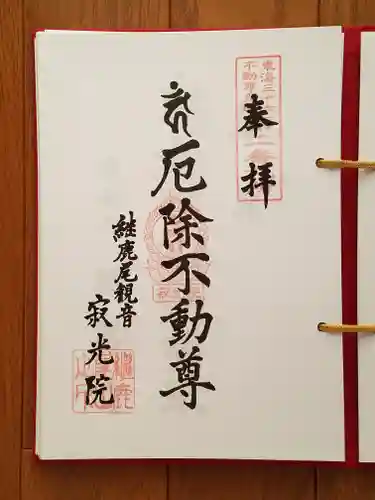 東海三十六
不動尊
奉拝
厄除不動尊
継鹿尾観音
寂光院